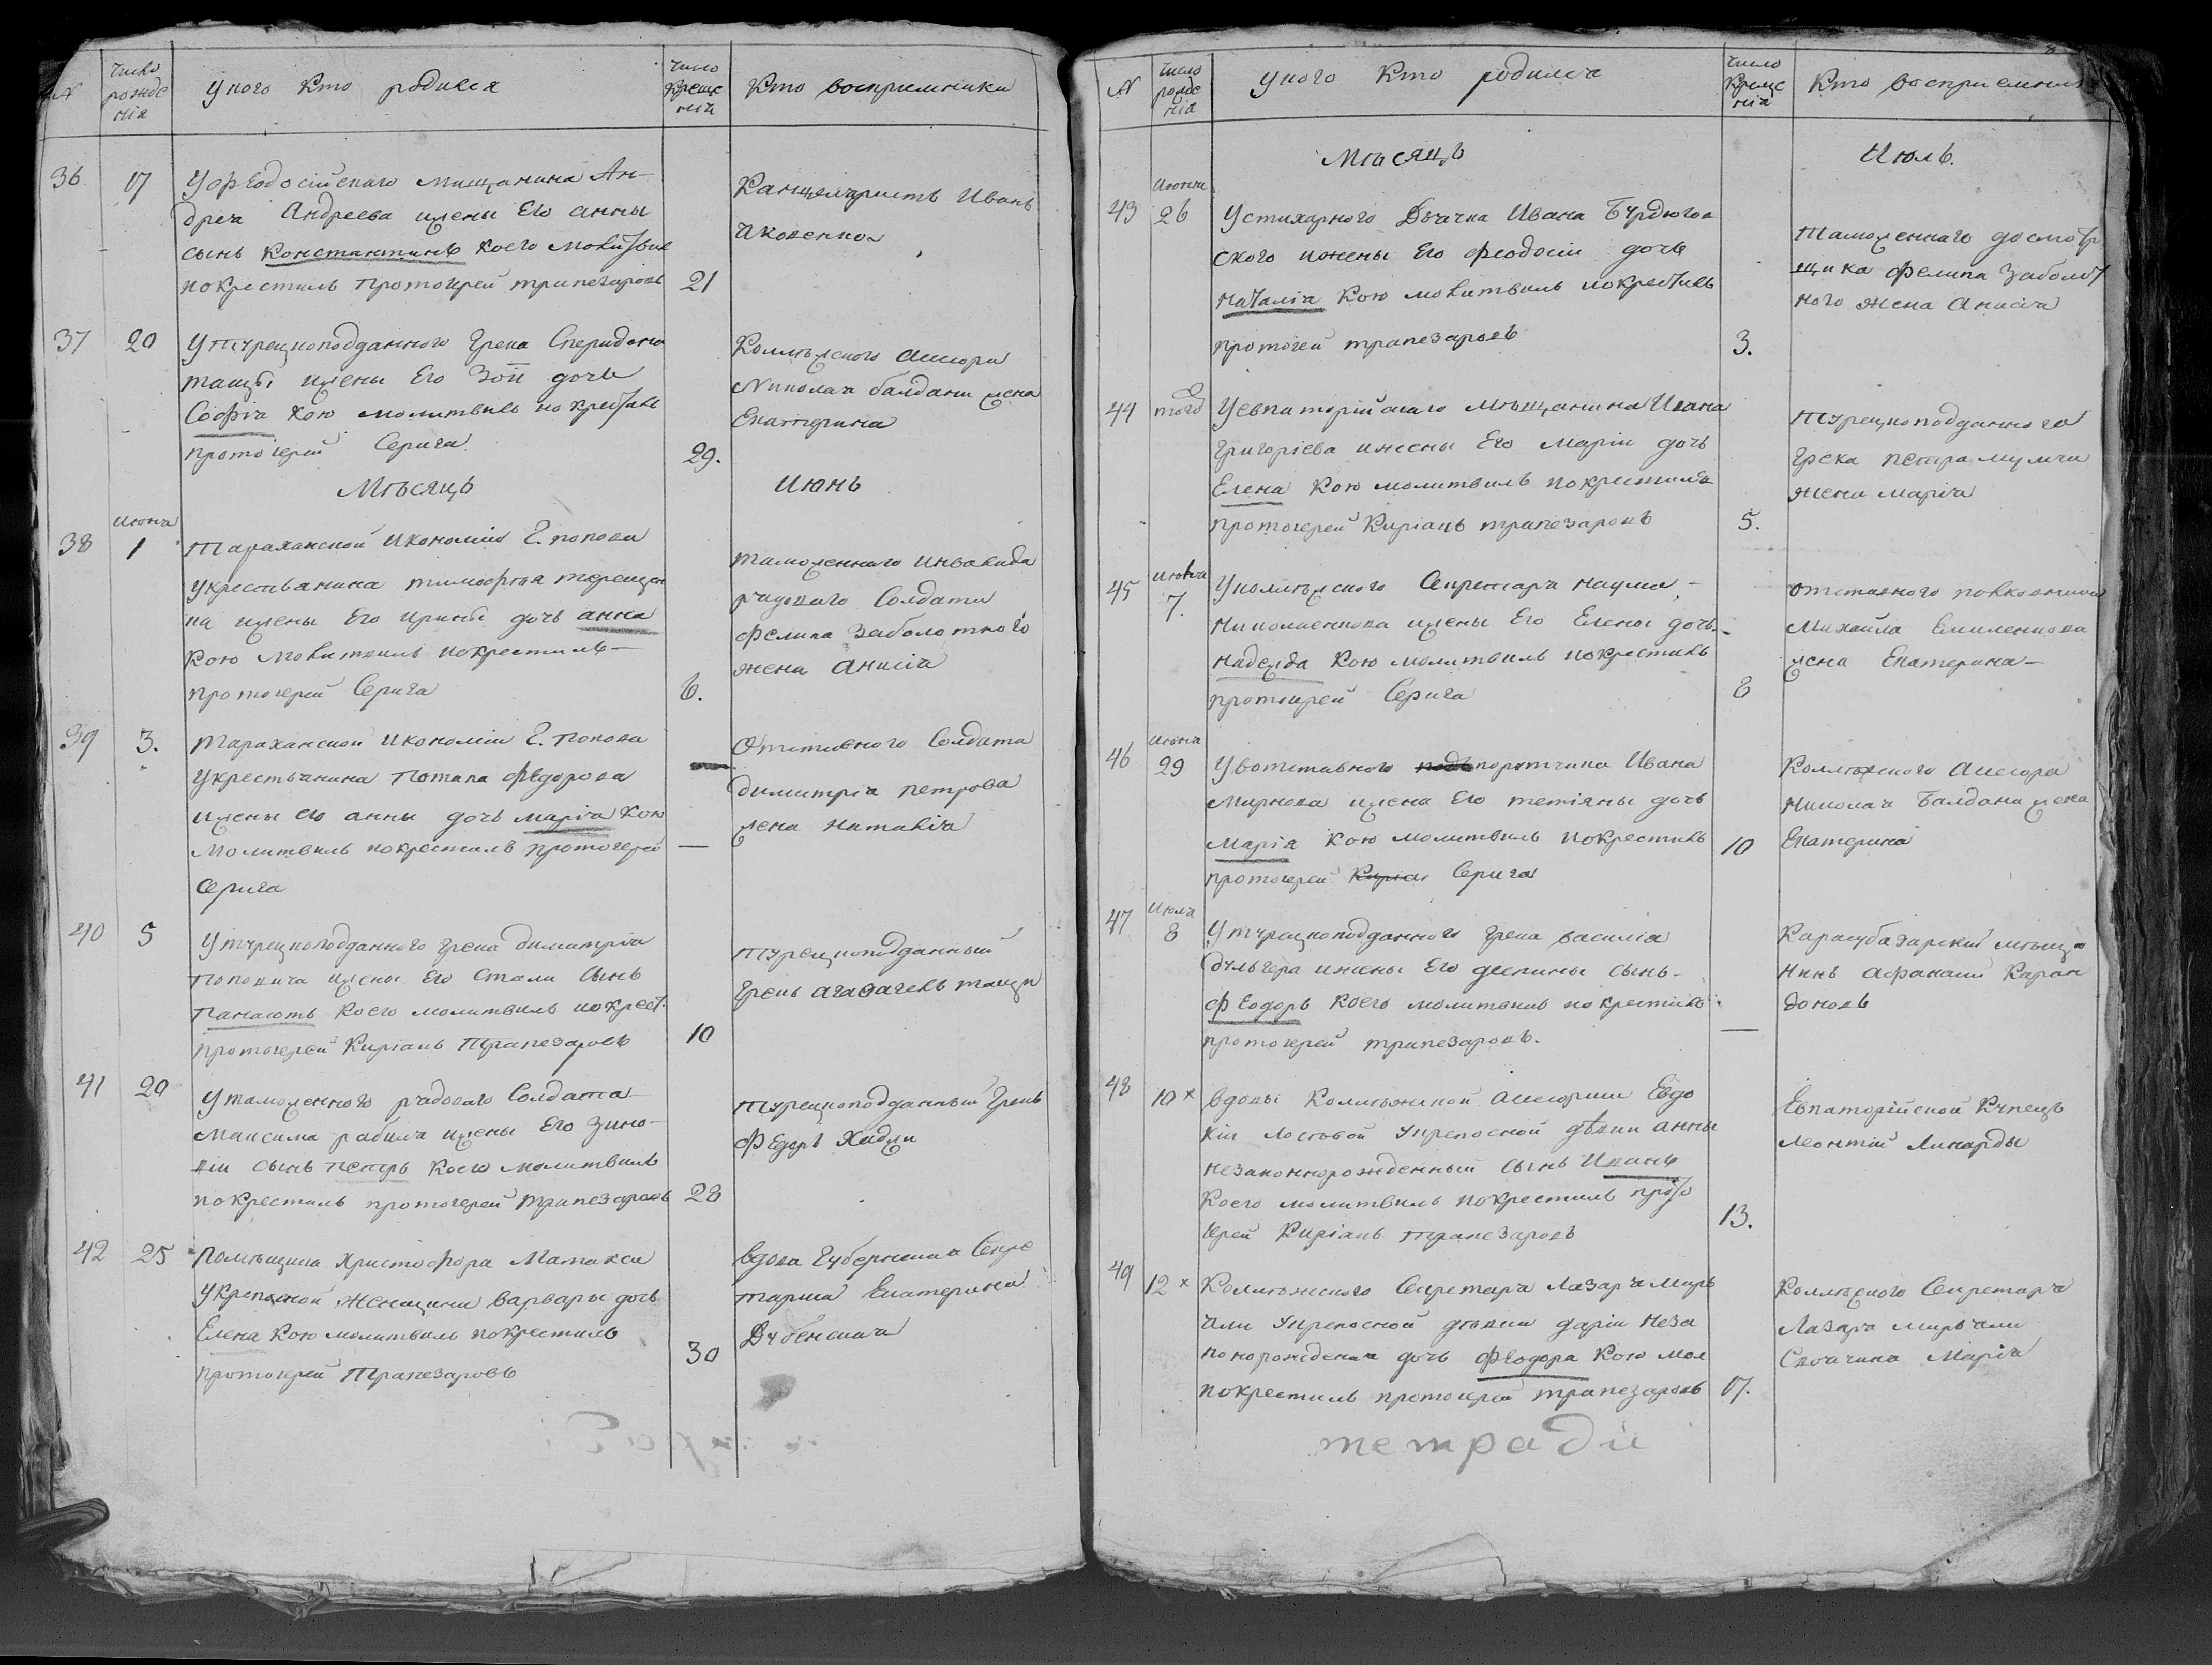 N
число рожде нія
у кого кто родился
число креще нія
Кто восприемники
36
17
У Феодосійскаго мищанина Ан-
дрея Андреева ижены Его анны
сынъ Константинъ коего молитвил
покрестилъ протоіерей трапезаровъ
21
Канцеляристъ Иванъ
Яковенко
37
20
У турецкоподданного грека Спиридона
ижены Его Зои дочь
Софія кою молитвилъ покрестилъ
протоіерей Серига
29.
Коллѣжского ассесора
Николая балдани жена
Екатерина
Мѣсяцъ
Июнь
38
Июня
1
Тараханской икономіи Г. попова
укрестьянина тимофѣя терещен
ка ижены Его ирины дочь анна
кою молитвилъ покрестилъ-
протоіерей Серига
6.
таможенного инвалида
рядоваго Солдата
Филипа заболотного
жена Анисія
39
3.
Тараханской икономіи Г. попова
укрестьянина Потапа Федорова
ижены его анны дочь марія кою
молитвилъ покрестилъ протоіерей
Серига
Отставного Солдата
Димитрія петрова
жена наталія
40
5
У турецкоподданного грека димитрія
Поповича ижены Его Стали сынъ
Панаіотъ коего молитвилъ покрест.
протоіерей Киріанъ Трапезаровъ
10
турецкоподданный
Грекъ
41
20
У таможенного рядоваго Солдата
Максима рабила ижены Его Зино-
віи сынъ петръ коего молитвилъ
покрестилъ протоіерей трапезаровъ
28
турецкоподданный Грекъ
Федоръ Хаджи
42
25
Помѣщика Христофора Матакси
укрепасной женщины варвары дочь
Елена кою молитвилъ покрестилъ
протоіерей Трапезаровъ
30
вдова Губернскаго Секре
тарша Екатерина
Дубенская
N
число рожде нія
у кого кто родился
число креще нія
Кто восприемники
Мѣсяцъ
Июль.
43
Июня
26
Устихарного Дьячка Ивана Бурдюгов
ского ижены Его феодосіи дочь
Наталія кою молитвилъ покрестилъ
протогей трапезаровъ
3.
таможеннаго досмотр
щика Филипа Заболот
ного жена Анисія
44
того
Уевпаторійскаго Мѣщанина Ивана
Григоріева ижены Его Маріи дочь
Елена кою молитвилъ покрестилъ
протоіерей Киріанъ трапезаровъ
5.
турецкоподданного
Грека петра
жена марія
45
Июля
7.
Уколлѣжского Секретаря наума-
Николаенкова ижены Его Елены дочь-
надежда кою молитвилъ покрестилъ
протоіерей Серига
8
отставного полковника
Михайла
жена Екатерина-
46
Июня
29
У вотставного порутчика Ивана
Миркова ижена Его тетіяны дочь
Марія кою молитвилъ покрестилъ
протоіерей Серига
10
Коллѣжского Ассесора
Николая Балдани жена
Екатерина
47
Июля
8
У турецкоподданного грека василія
дульгера ижены Его деспины сынъ-
Феодоръ коего молитвилъ покрестилъ
протоіерей трапезаровъ.
Карасубазарскій мѣща
нинъ Афанасій Каран
доновъ
48
10 х
вдовы Колѣжской Ассесорши Евдо
кіи крепосной дѣвки анны
незаконнорожденный сынъ Иванъ
коего молитвилъ покрестилъ прото
іерей Киріанъ трапезаровъ
13.
Евпаторійской Купецъ
Леонтій Линарды
49
12 х
Коллѣжского Секретаря Лазаря
укрепосной дѣвки даріи неза
конорожденая дочь Феодора кою мол
покрестилъ протоіерей трапезаровъ
17.
Коллѣжского Секретаря
Лазаря
Своячина Марія
тетради